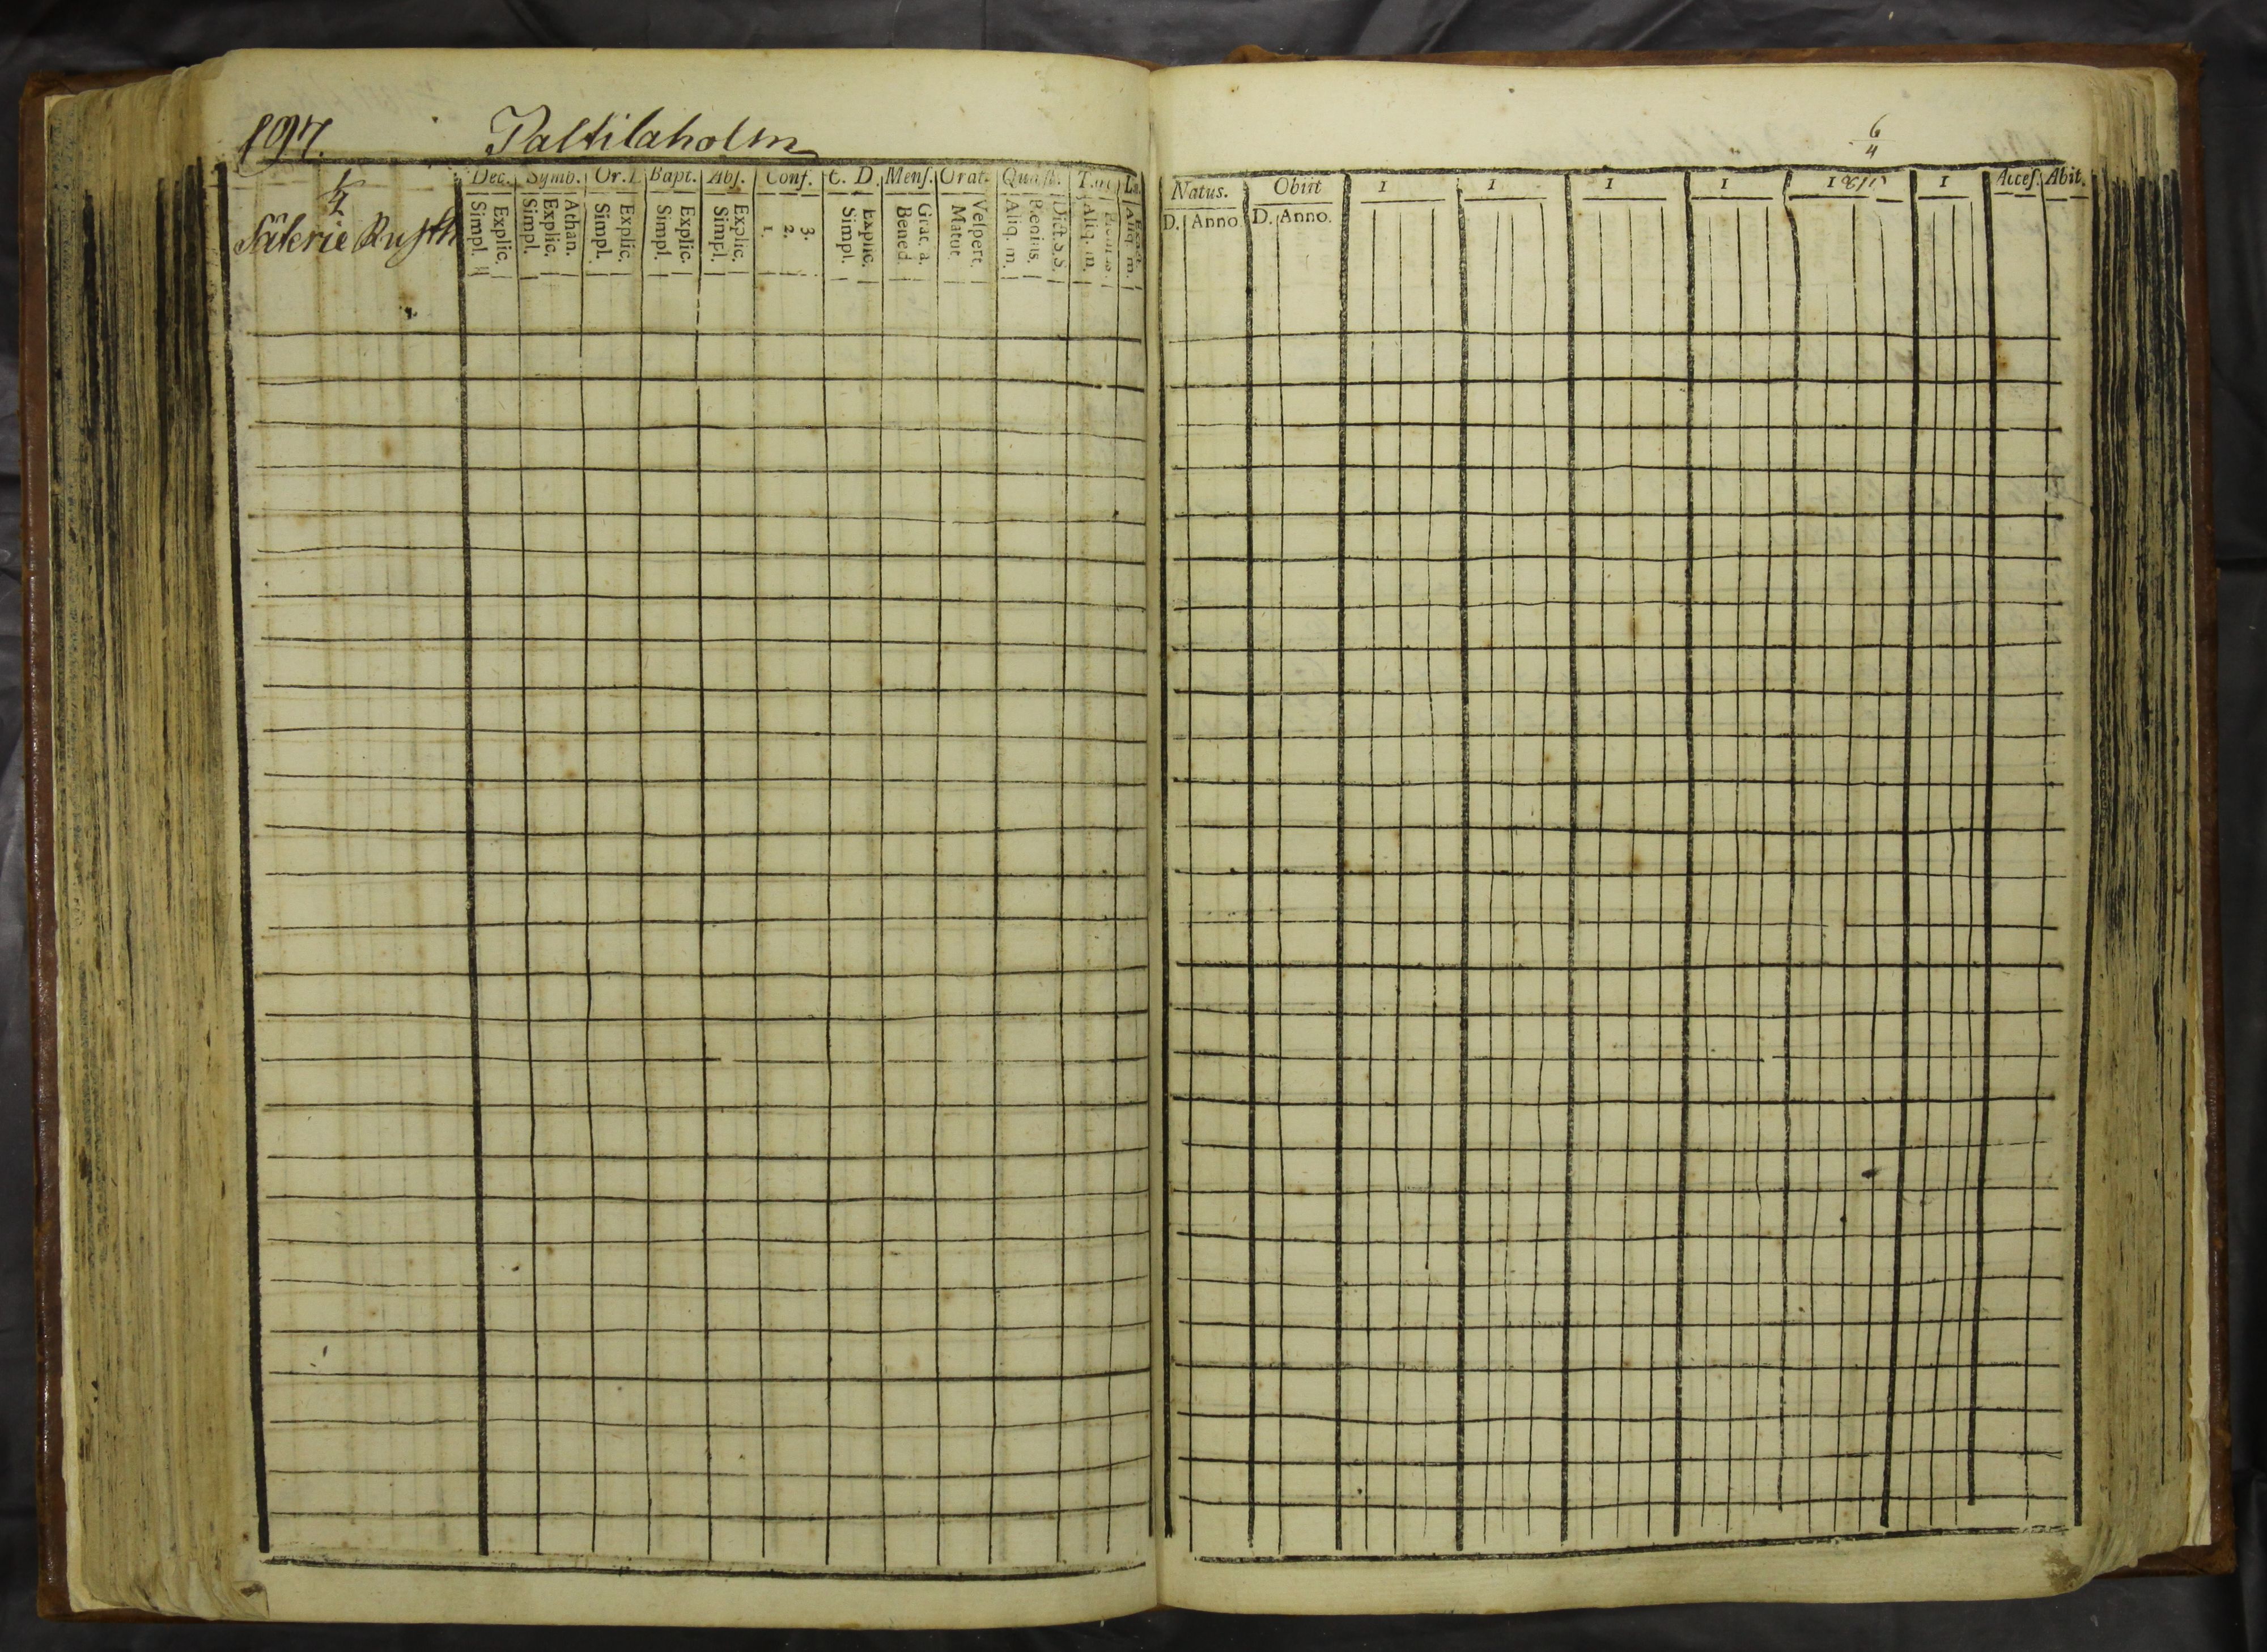 197. Paltilaholm
1/4
Säterie Rusth
Dec. Symb. Or. D. Bapt. Abs. Conf. C. D. Mens. Orat. Quæst. T.
Simpl. Explic. Simpl. Explic. Athan. Simpl. Explic. Simpl. Explic. Simpl. Explic. 1. 2. 3. Simpl. Explic. Bened. Grat. a. Matut. Vespert. Aliq. m. Dict. S.S. Aliq. m. Aliq. m.
6/4
Natus. Obiit 1 1 1 1 1810 1 Acces. Abit.
D. Anno D. Anno.